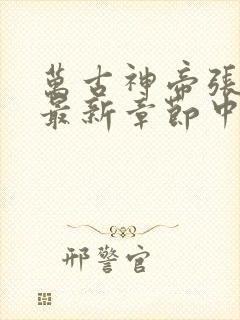 萬古神帝張
最新章節中
邢警官